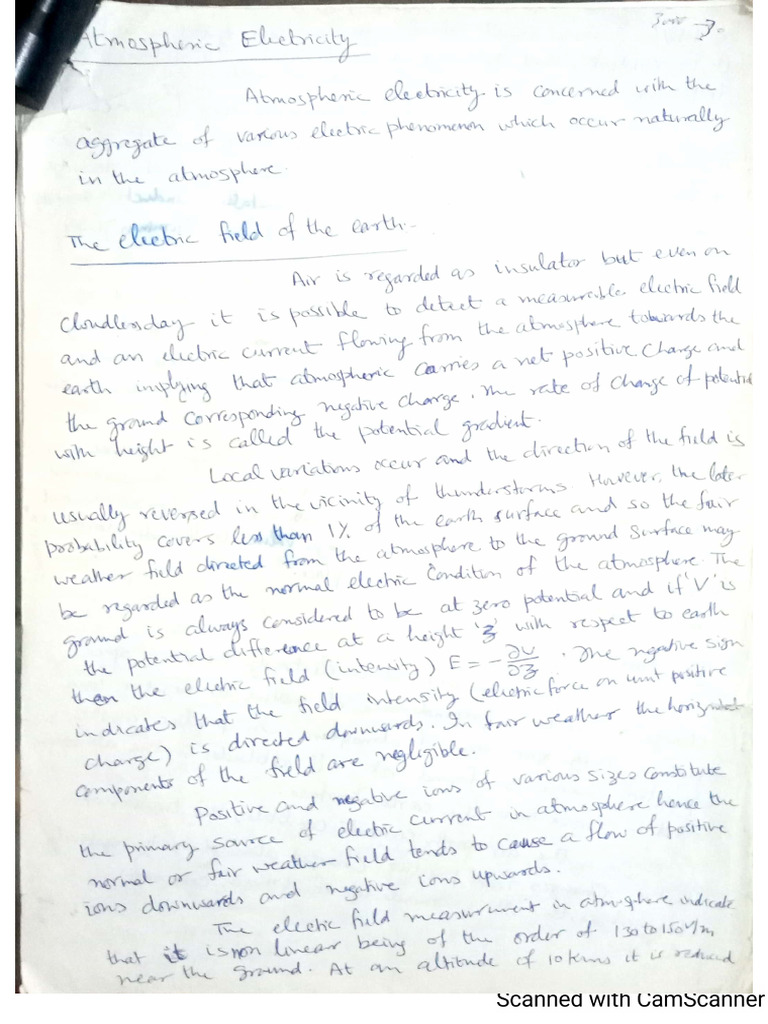 3.
Atmospheric Electricity
Atmospheric electricity is concerned with the
aggregate of various electric phenomenon which occur naturally
in the atmosphere.
The electric field of the earth.
Air is regarded as insulator but even on
Cloudlessday it is possible to detect a measureble electric field
and an electric current flowing from the atmosphere towards the
earth implying that atmospheric carries a net positive Charge and
the ground corresponding negative charge. The rate of change of potential
with height is called the potential gradient.
Local variations occur and the direction of the field is
usually reversed in the vicinity of thunderstorms. However, the later
probability covers less than 1% of the earth surface and so the fair
weather field directed from the atmosphere to the ground surface may
be regarded as the normal electric condition of the atmosphere. The
ground is always considered to be at zero potential and if 'V' is
the potential difference at a height 'z' with respect to earth
then the electric field (intensity) E = -∂v/∂z. The negative sign
indicates that the field intensity (electric force on unit positive
charge) is directed downwards. In fair weather the horizontal
components of the field are negligible.
Positive and negative ions of various sizes constitute
the primary source of electric current in atmosphere hence the
normal or fair weather field tends to cause a flow of positive
ions downwards and negative ions upwards.
The electric field measurement in atmosphere indicate
that it is non linear being of the order of 130 to 150 V/m
near the ground. At an altitude of 10 kms it is reduced
Scanned with CamScanner